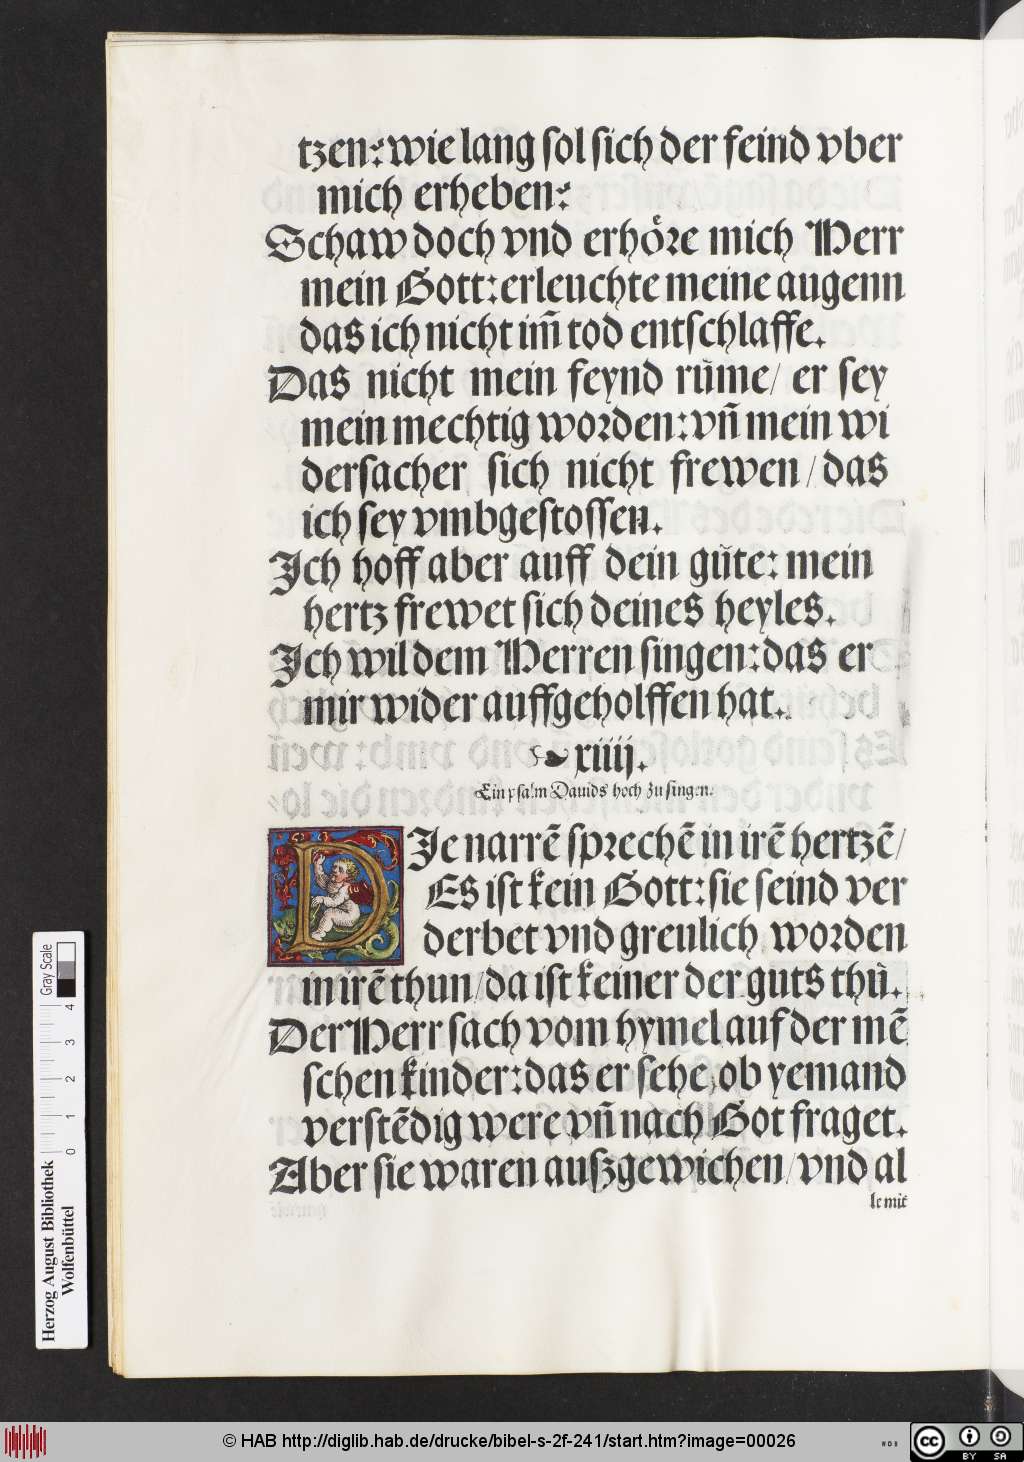 tzen: wie lang sol sich der feind vber
mich erheben:
Schaw doch vnd erhöre mich Herr
mein Gott: erleuchte meine augenn
das ich nicht im̃ tod entschlaffe.
Das nicht mein feynd růme/ er sey
mein mechtig worden: vñ mein wi
dersacher sich nicht frewen/ das
ich sey vmbgestossen.
Ich hoff aber auff dein gůte: mein
hertz frewet sich deines heyles.
Ich wil dem Herren singen: das er
mir wider auffgeholffen hat.
xiiij.
Ein psalm Dauids hoch zu singen.
DIe narrẽ sprechẽ in irẽ hertzẽ/
Es ist kein Gott: sie seind ver
derbet vnd greulich worden
in irẽ thun/ da ist keiner der guts thů.
Der Herr sach vom hymel auf der mẽ
schen kinder: das er sehe, ob yemand
verstẽdig were vñ nach Got fraget.
Aber sie waren außgewichen/ vnd al
le mit
Herzog August Bibliothek
Wolfenbüttel
0 1 2 3 4
Gray Scale
© HAB http://diglib.hab.de/drucke/bibel-s-2f-241/start.htm?image=00026
WDB
cc BY SA